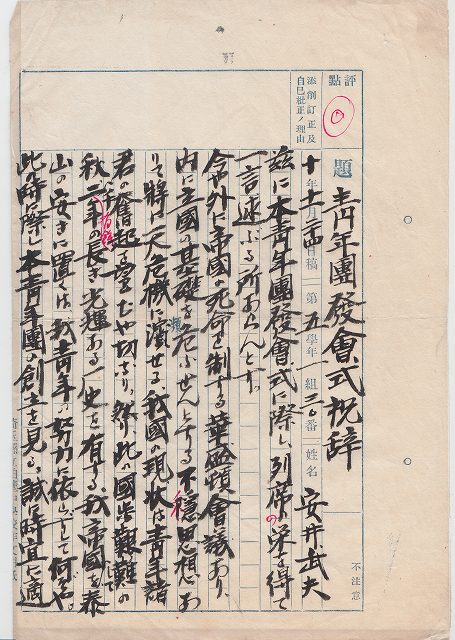 評點
添削訂正及
自己批正ノ理由
題 青年團發會式祝辞
年 月 日稿 第五學年一組三〇番 姓名 安井武夫
不注意
茲に本青年團發會式に際し、列席の栄を得て
一言述ぶる所あらんとす。
今や外に帝國の死命を制する華盛頓會議あり、
内に立國の基礎を危ふせんとする不穏思想あ
りて將に一大危機に濱せる我國の現状は青年諸
君の奮起を望むや切なり。然り此の國歩艱難の
秋二千有餘年の長き光輝ある史を有する我帝國を泰
山の安きに置くは、我青年の努力に依らずして何ぞや。
此時に際し本青年團の創立を見る。誠に時宜に適